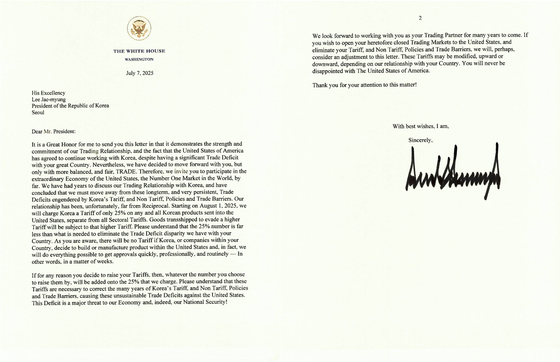 THE WHITE HOUSE
WASHINGTON
July 7, 2025
His Excellency
Lee Jae-myung
President of the Republic of Korea
Seoul
Dear Mr. President:
It is a Great Honor for me to send you this letter in that it demonstrates the strength and
commitment of our Trading Relationship, and the fact that the United States of America
has agreed to continue working with Korea, despite having a significant Trade Deficit
with your great Country. Nevertheless, we have decided to move forward with you, but
only with more balanced, and fair, TRADE. Therefore, we invite you to participate in the
extraordinary Economy of the United States, the Number One Market in the World, by
far. We have had years to discuss our Trading Relationship with Korea, and have
concluded that we must move away from these longterm, and very persistent, Trade
Deficits engendered by Korea's Tariff, and Non Tariff, Policies and Trade Barriers. Our
relationship has been, unfortunately, far from Reciprocal. Starting on August 1, 2025, we
will charge Korea a Tariff of only 25% on any and all Korean products sent into the
United States, separate from all Sectoral Tariffs. Goods transshipped to evade a higher
Tariff will be subject to that higher Tariff. Please understand that the 25% number is far
less than what is needed to eliminate the Trade Deficit disparity we have with your
Country. As you are aware, there will be no Tariff if Korea, or companies within your
Country, decide to build or manufacture product within the United States and, in fact, we
will do everything possible to get approvals quickly, professionally, and routinely — In
other words, in a matter of weeks.
If for any reason you decide to raise your Tariffs, then, whatever the number you choose
to raise them by, will be added onto the 25% that we charge. Please understand that these
Tariffs are necessary to correct the many years of Korea's Tariff, and Non Tariff, Policies
and Trade Barriers, causing these unsustainable Trade Deficits against the United States.
This Deficit is a major threat to our Economy and, indeed, our National Security!
2
We look forward to working with you as your Trading Partner for many years to come. If
you wish to open your heretofore closed Trading Markets to the United States, and
eliminate your Tariff, and Non Tariff, Policies and Trade Barriers, we will, perhaps,
consider an adjustment to this letter. These Tariffs may be modified, upward or
downward, depending on our relationship with your Country. You will never be
disappointed with The United States of America.
Thank you for your attention to this matter!
With best wishes, I am,
Sincerely,